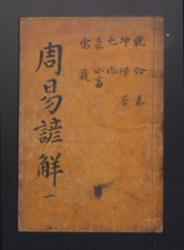 乾 訟 泰
坤 師 否
屯 比
蒙 小畜
需 履
周易諺解 一